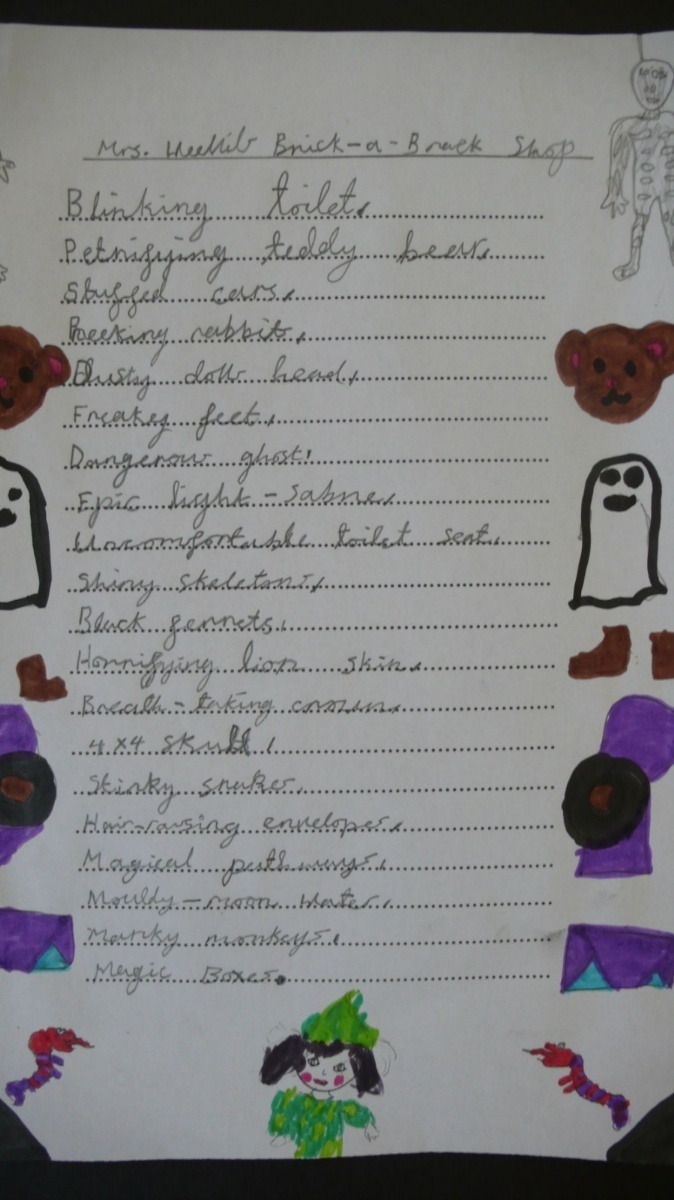 Mrs. Brick-a-Brack Shop
Blinking toilet,
Petrifying teddy bear,
Stuffed cars,
Reeking rabbits,
Dusty dolls head,
Freakey feet,
Dangerous ghost,
Epic light-Sabre,
Uncomfortable toilet seat,
Shiny skeletons,
Black ferrets,
Horrifying lion skin,
Breath-taking
4x4 skull,
Stinky snakes,
Hair-raising envelopes,
Magical pathways,
Mouldy-moon Water,
Manky monkeys,
Magic Boxes.